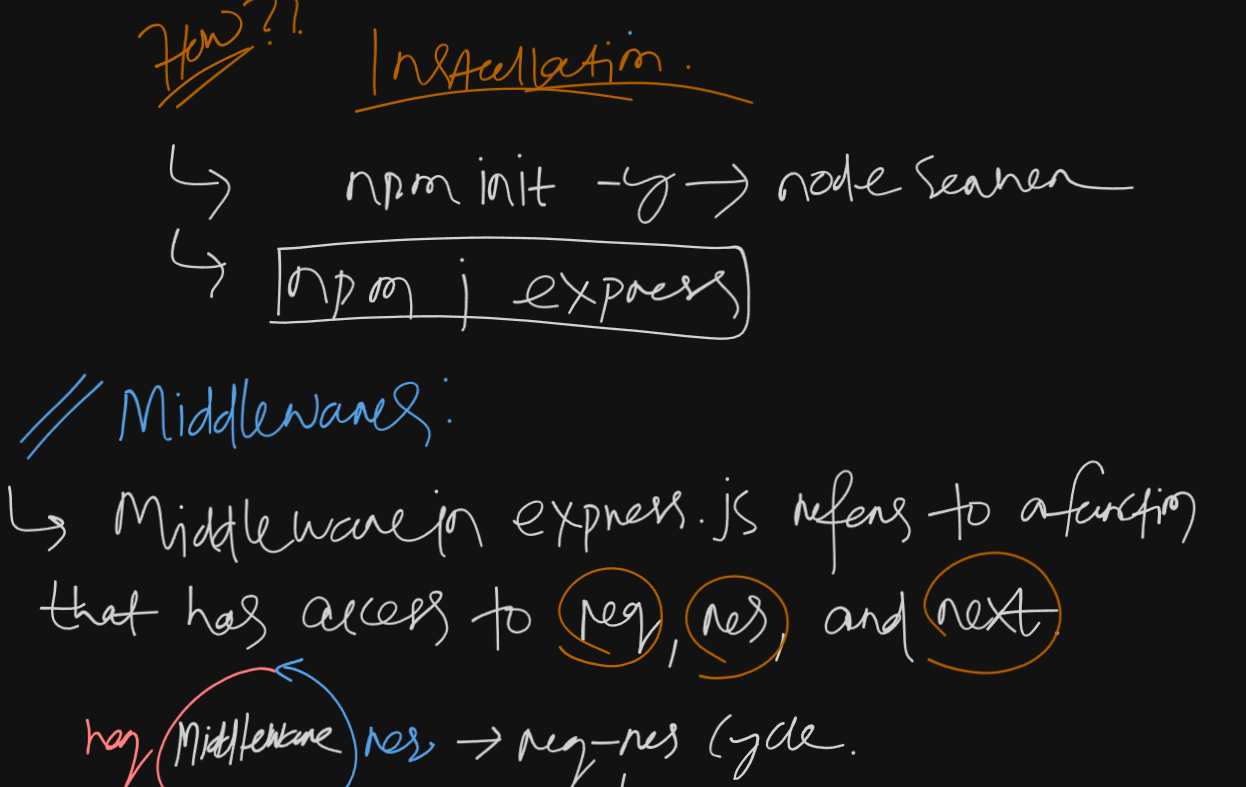 How??
Installation.
npm init -y → node server
npm i express
// Middlewares:
Middleware in express.js refers to a function
that has access to req, res, and next.
req Middleware res → req-res Cycle.